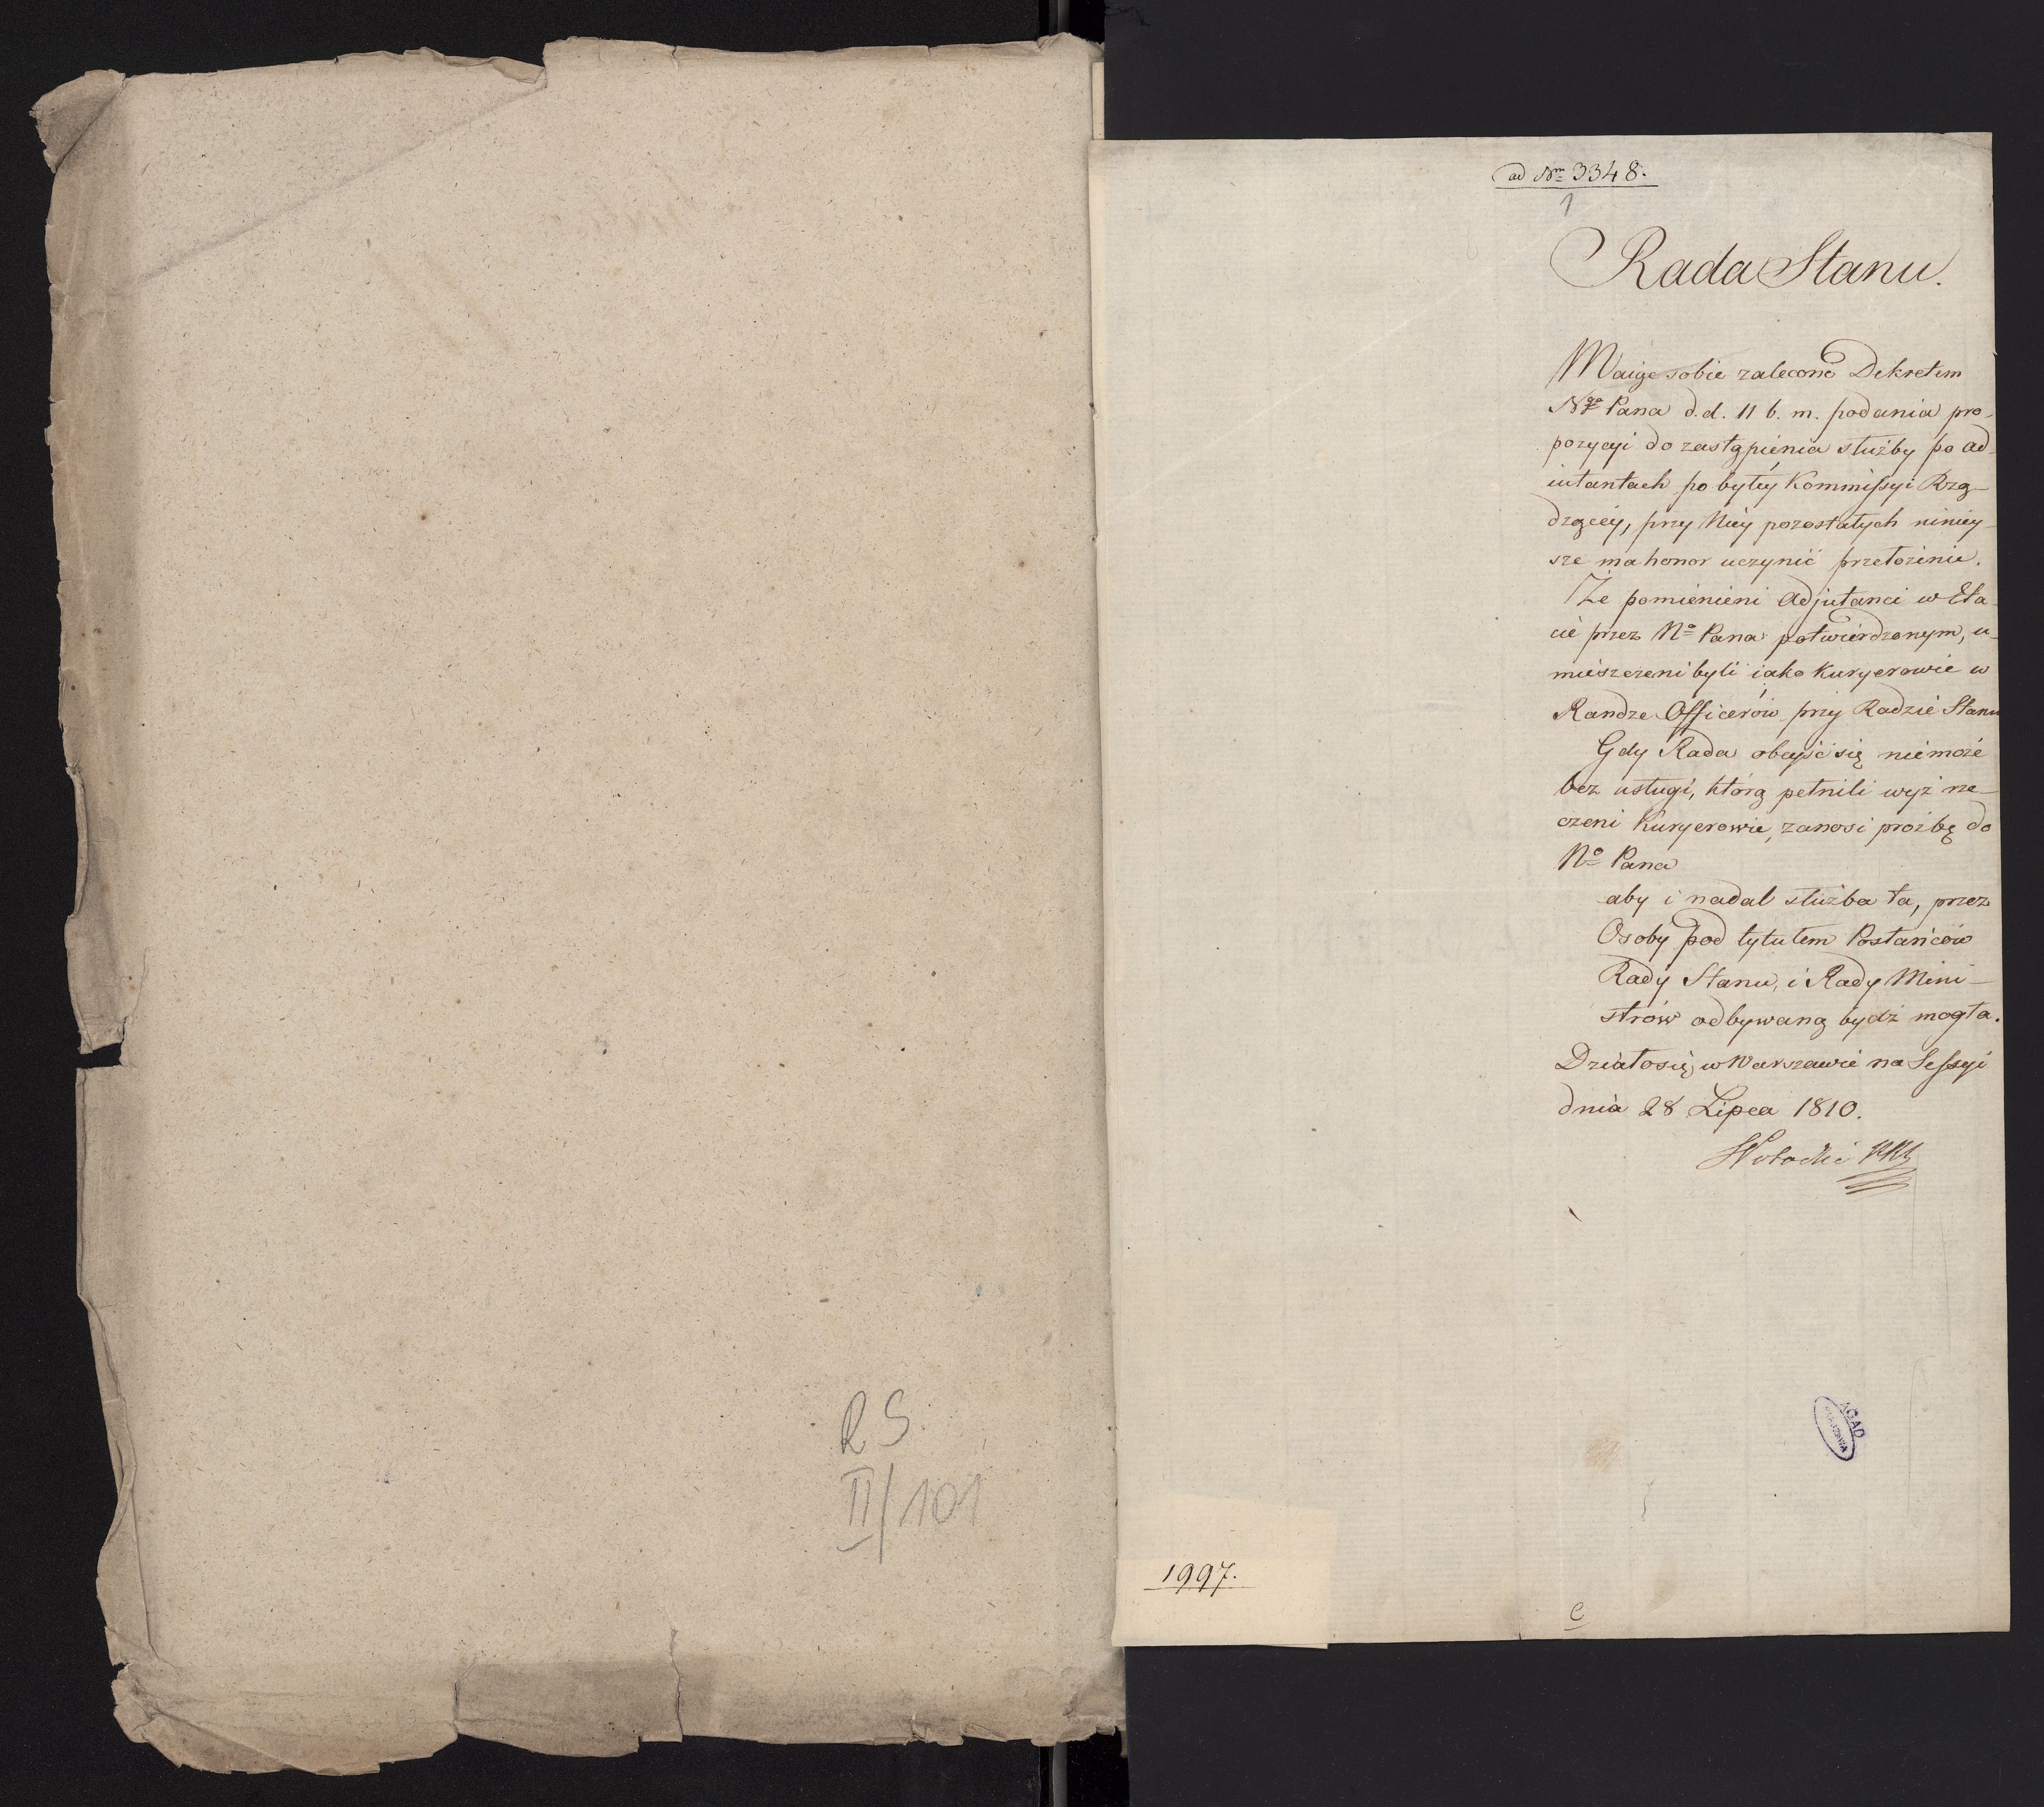 RS.
II/101
ad Nm 3348.
1
Rada Stanu.
Maiąc sobie zalecone Dekretem
Ngo Pana d. d. 11 b. m. podania pro-
pozycyi do zastąpienia służby po ad-
iutantach po byłey Kommissyi Rzą-
dzącey, przy Niey pozostałych niniey-
sze ma honor uczynić przełożenie.
Że pomienieni Adjutanci w Eta-
cie przez No Pana potwierdzonym, u-
mieszczeni byli iako Kuryerowie w
Randze Officerów przy Radzie Stanu
Gdy Rada obeyść się niemoże
bez usługi, którą pełnili wyż rze-
czeni Kuryerowie, zanosi proźbę do
No Pana
aby i nadal służba ta, przez
Osoby pod tytułem Posłańców
Rady Stanu, i Rady Mini-
strów odbywaną bydź mogła.
Działo się w Warszawie na Sessyi
dnia 28 Lipca 1810.
AGAD
WARSZAWA
1997.
C